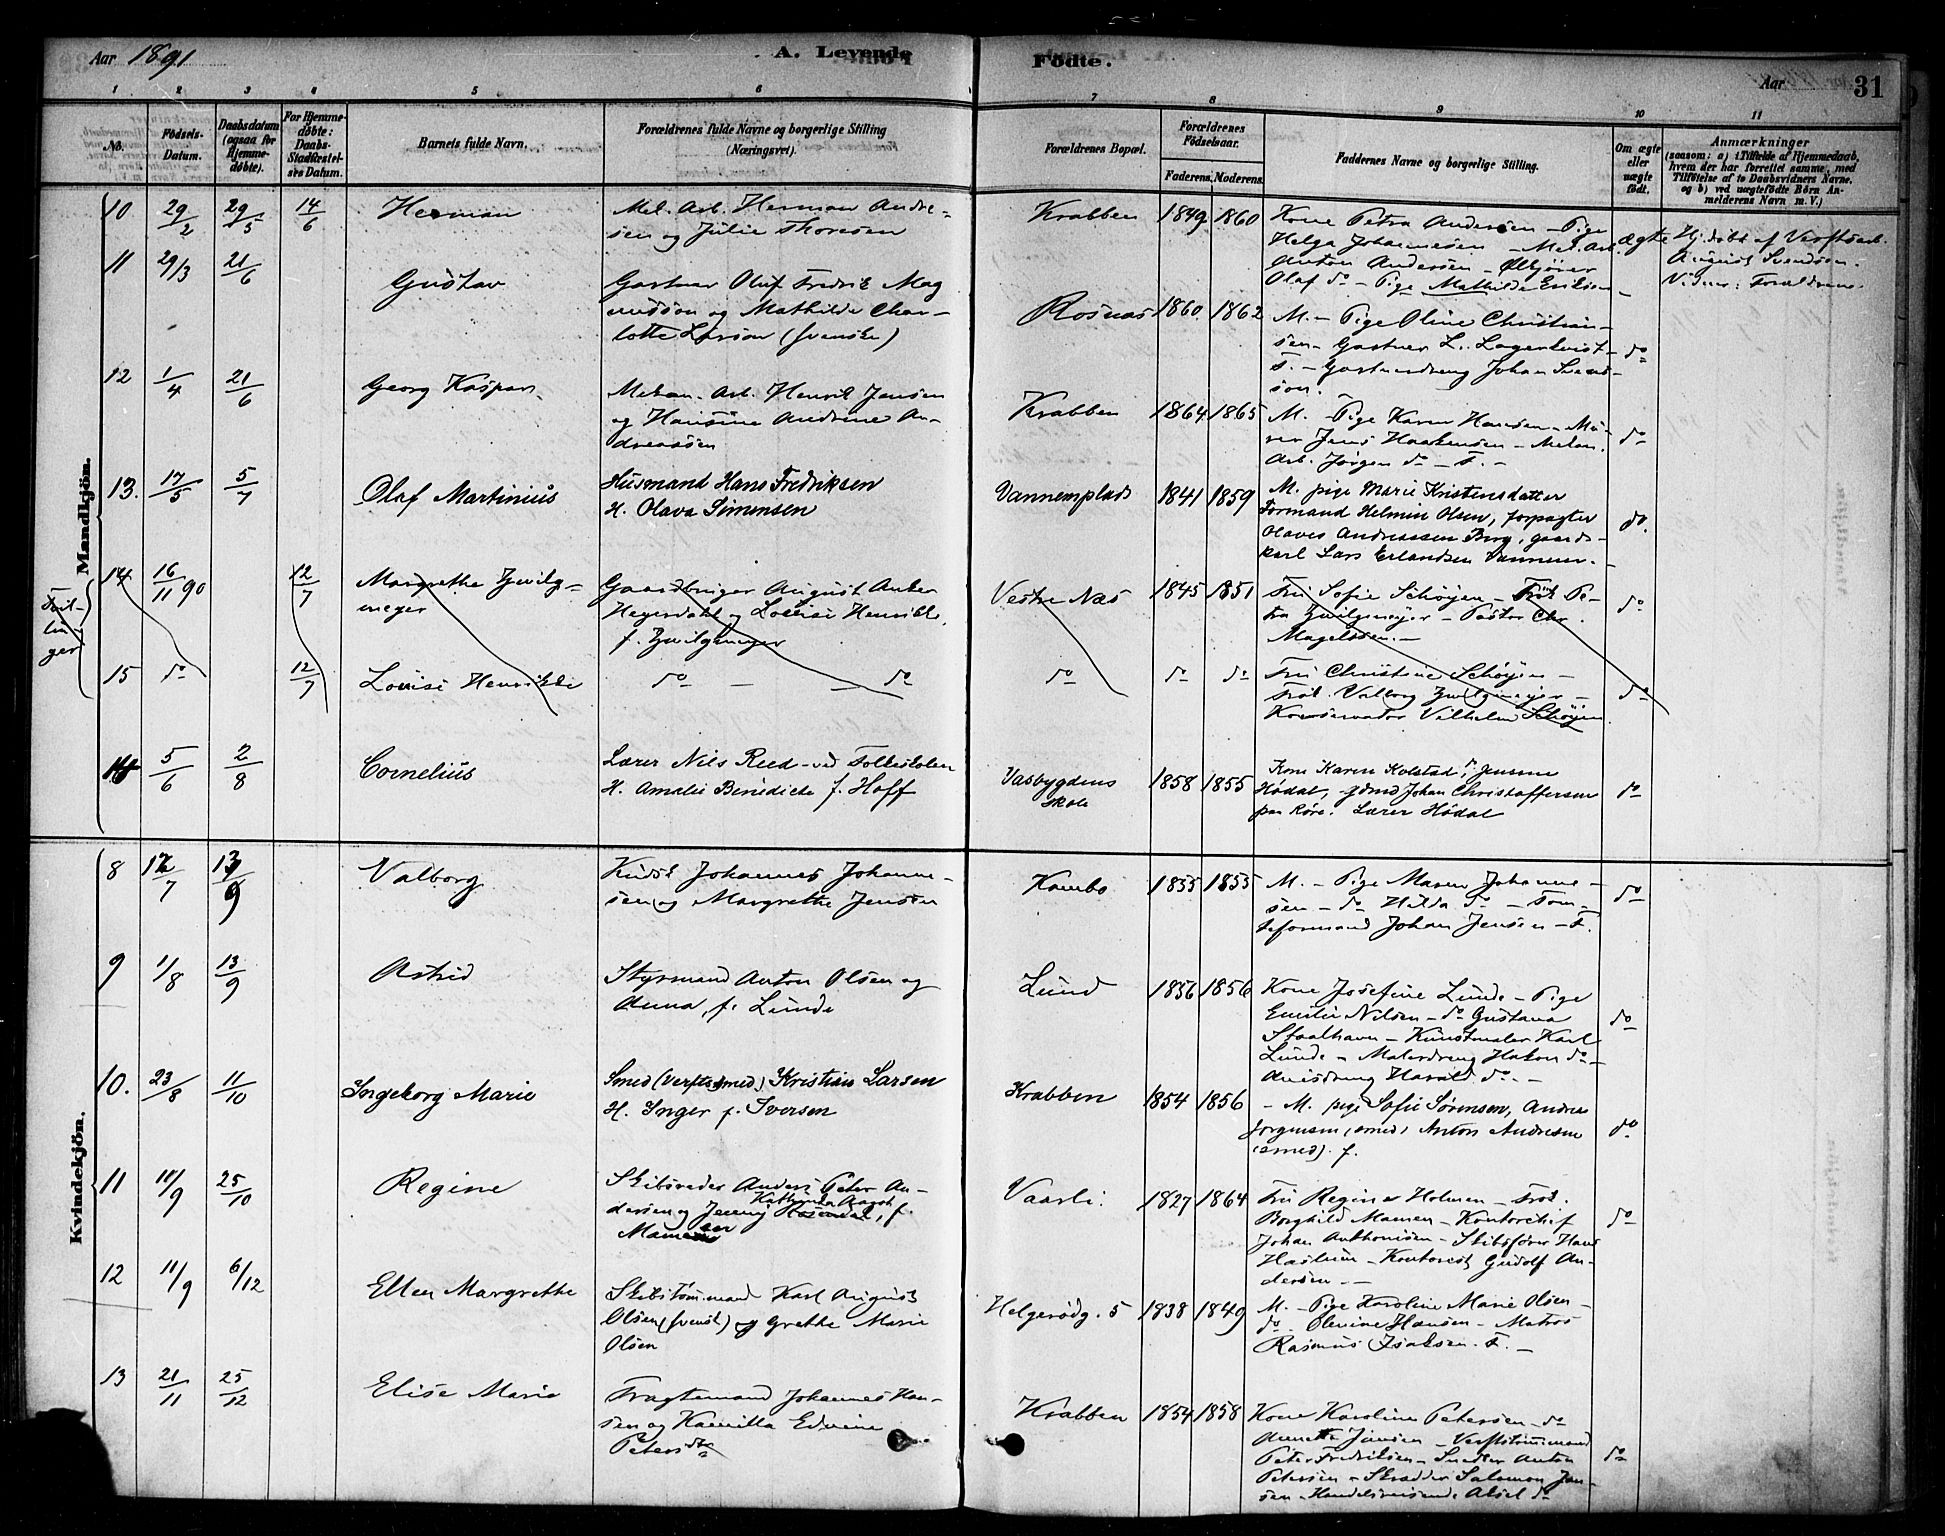 Aar 1891
A. Levende
Födte.
Aar
31
1 2 3 4 5 6 7 8 9 10 11
No.
Födsels-Datum.
Daabsdatum (ogsaa for Hjemme-döbte).
For Hjemme-döbte: Daabs-Stadfæstel-ses Datum.
Barnets fulde Navn.
Forældrenes fulde Navne og borgerlige Stilling (Næringsvei).
Forældrenes Bopæl.
Forældrenes Födselsaar.
Faderens. Moderens.
Faddernes Navne og borgerlige Stilling.
Om ægte eller uægte födt.
Anmærkninger
(saasom: a) i Tilfælde af Hjemmedaab, hvem der har forrettet samme, med Tilföielse af to Daabsvidners Navne, og b) ved uægtefödte Börn Anmelderens Navn m. V.)
Mandkjön.
10 29/2 29/5 14/6 Herman
Mek. Arb. Herman Andre-
sen og Julie Thoresen
Krabben 1849 1860
Kone Petra Andersen – Pige
Helga Johannesen – Mek. Arb.
Anton Andersen – Ølkjører
Olaf do – Pige Mathilde Eriksen
ægte
Hj. døbt af Verftsarb.
August Svendsen.
Vidner: Forældrene.
11 29/3 21/6 Gustav
Gartner Oluf Fredrik Mag
nusson og Mathilde Char-
lotte Larson (svenske)
Rosnæs 1860 1862
M. – Pige Oline Christian-
sen – Gartner L. Lagerkvist –
F. – Gartnerdreng Johan Svend-
sen.
do
12 1/4 21/6 Georg Kaspar
Mekan. Arb. Henrik Jensen
og Hansine Andrine An-
dreassen
Krabben 1864 1865
M. – Pige Karen Hansen – Mu-
rer Jens Haakensen – Mekan.
Arb. Jørgen do – F. –
do
13. 17/5 5/7 Olaf Martinius
Husmand Hans Fredriksen
H. Olava Simensen
Vannemplads 1841 1859
M. pige Marie Kristensdatter
Formand Helmin Olsen, forpagter
Olaves Andreassen Berg, gaards-
karl Lars Erlandsen Vannem.
do.
Tvil-
lin
ger
14 16/11 90 12/7 Margrethe Zwilg-
meyer
Gaardbruger August Anker
Heyerdahl og Lovise Henrikke,
f. Zwilgmeyer
Vestre Næs 1845 1851
Fru Sofie Schøyen – Frøk. Pe-
tra Zwilgmeyer – Pastor Chr.
Magelssen. –
do
15 do 12/7 Lovise Henrikke
do – – do
do do do
Fru Christine Schøyen –
Frøk. Valborg Zwilgmeyer –
Konservator Vilhelm Schøyen
do
5/6 2/8 Cornelius
Lærer Nils Reed – ved Folkeskolen
H. Amalie Benedicte f. Hoff
Vasbygdens
skole 1858 1855
Kone Karen Kolstad, Jensine
Hødal, gdmd Johan Christoffersen
paa Røre. Lærer Hødal
do
Kvindekjön.
8 12/7 13/9 Valborg
Kudsk Johannes Johanne-
sen og Margrethe Jensen
Kambo 1855 1855
M. – Pige Maren Johanne-
sen – do Hilda do – Tom-
teformand Johan Jensen – F.
do
9 11/8 13/9 Astrid
Styrmand Anton Olsen og
Anna, f. Lunde
Lund 1856 1856
Kone Josefine Lunde – Pige
Emilie Nilsen – do Gustava
Staalhavn – Kunstmaler Karl
Lunde – Malerdreng Hakon do –
Avisdreng Harald do. –
do
10. 23/8 11/10 Ingeborg Marie
Smed (Verftssmed) Kristian Larsen
H. Inger f. Iversen
Krabben 1854 1856
– M. pige Sofie Sørensen, Andrea
Jørgensen (smed) Anton Andresen
(smed). f.
do
11 11/9 25/10 Regine
Skibsreder Anders Peter An-
dersen og Jenny Kathinka Aagot, f.
Mamen
Vaarli. 1827 1864
Fru Regine Holmen – Frøk.
Borghild Mamen – Kontorchef
Johan Anthonisen – Skibsfører Hans
Haslum – Kontorist Gudolf An-
dersen – –
do
12 11/9 6/12 Ellen Margrethe
Skibstømmand Karl August
Olsen (svensk) og Grethe Marie
Olsen
Helgerødg. 5 1838 1849
M. – Pige Karoline Marie Olsen –
do – Olevine Hansen – Matros
Rasmus Isaksen. F. –
13 21/11 25/12 Elise Marie
Fragtemand Johannes Han-
sen og Kamilla Edvine
Petersdtr
Krabben 1854 1858
Kone Karoline Petersen – do
Annette Jensen – Verftstømmand
Peter Fredriksen – Snedker Anton
Petersen – Skrædder Salomon Jen-
sen – Handelsreisende Aksel do
do